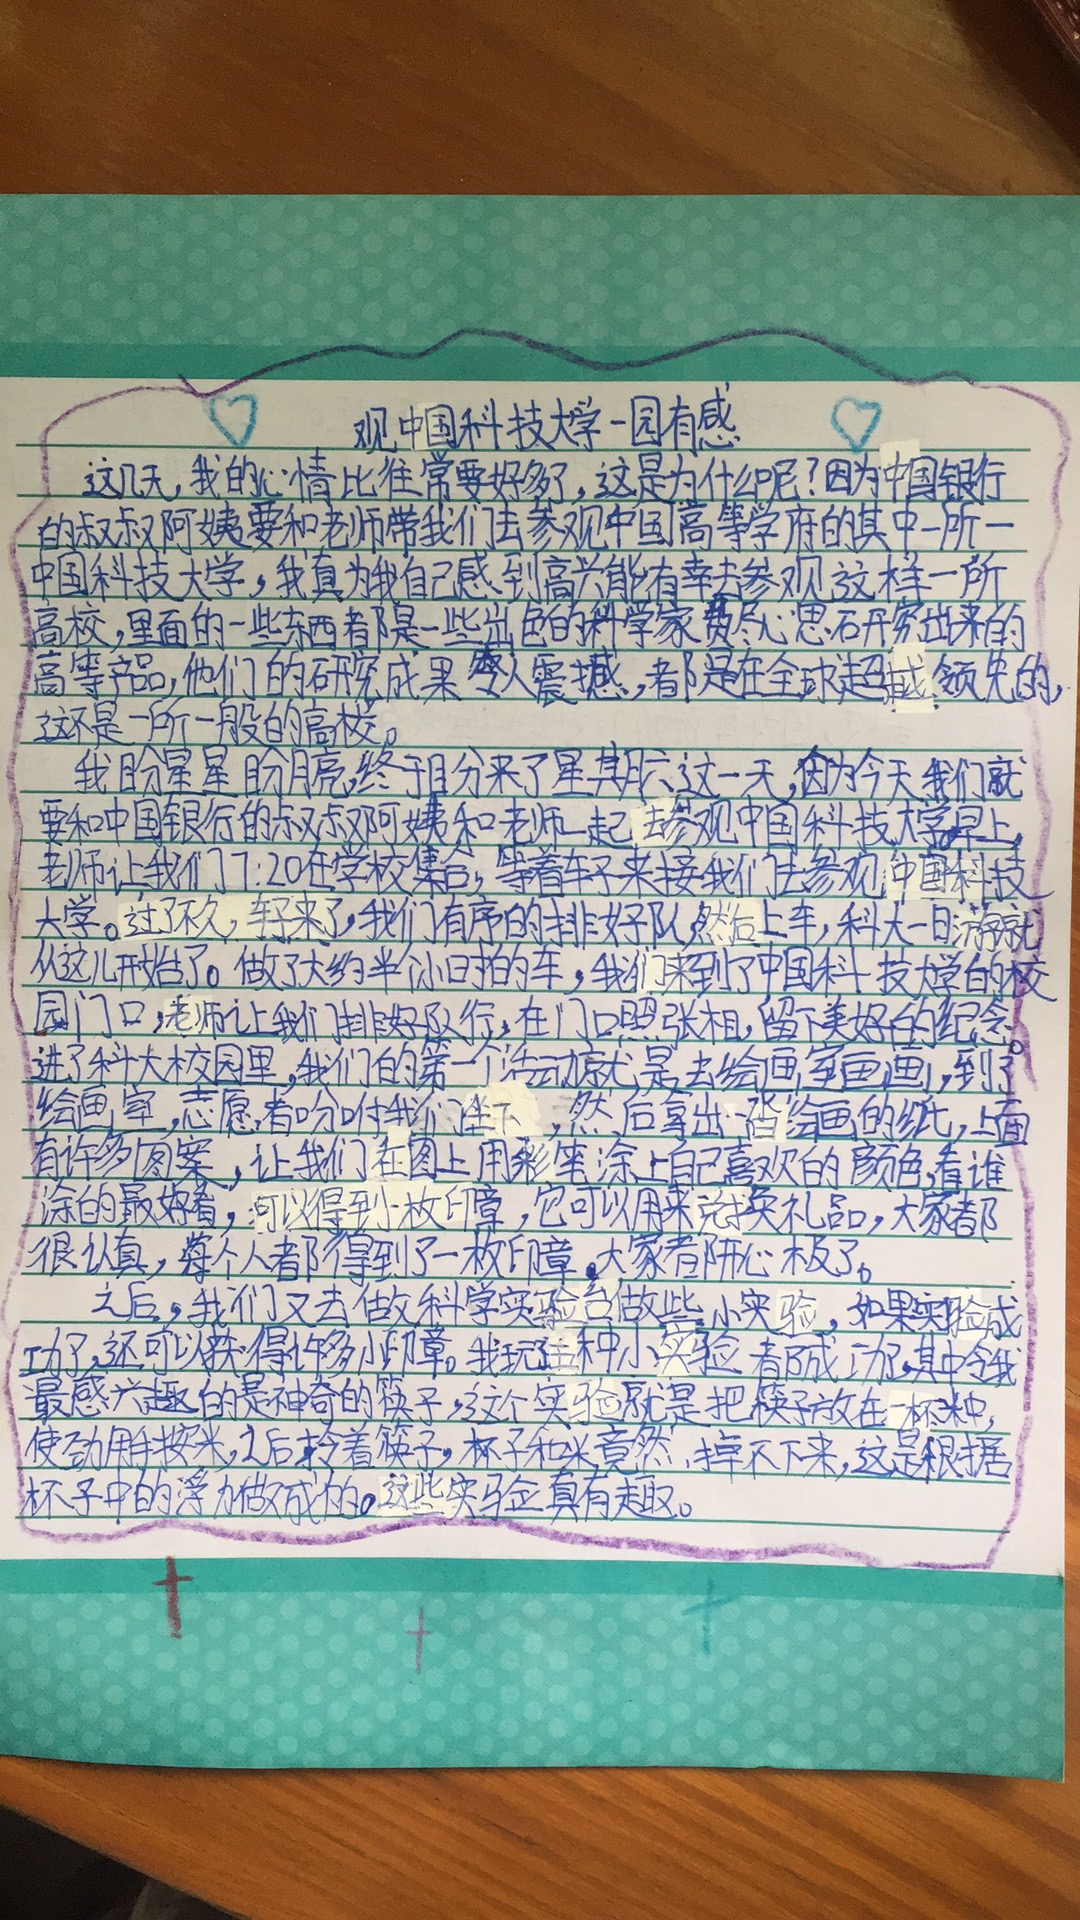 观中国科技大学一园有感
这几天，我的心情比往常要好多了，这是为什么呢？因为中国银行
的叔叔阿姨要和老师带我们去参观中国高等学府的其中一所一
中国科技大学，我真为我自己感到高兴能有幸去参观这样一所
高校，里面的一些东西都是一些出色的科学家费尽心思研究出来的
高等产品，他们的研究成果令人震撼，都是在全球超越领先的，
这不是一所一般的高校。
我盼星星盼月亮，终于盼来了星期六这一天，因为今天我们就
要和中国银行的叔叔阿姨和老师一起去参观中国科技大学早上，
老师让我们7:20在学校集合，等着车子来接我们去参观中国科技
大学。过了不久，车子来了，我们有序的排好队然后上车，科大一日游就
从这儿开始了。做了大约半个小时的车，我们来到了中国科技大学的校
园门口，老师让我们排好队行，在门口照张相，留下美好的纪念。
进了科大校园里，我们的第一个活动就是去绘画室画画，到了
绘画室，志愿者吩咐我们坐下，然后拿出一沓绘画的纸，上面
有许多图案，让我们在图上用彩笔涂上自己喜欢的颜色，看谁
涂的最好看，可以得到小枚印章，它可以用来兑换礼品，大家都
很认真，每个人都得到了一枚印章。大家都开心极了。
之后，我们又去做科学实验台做些小实验，如果实验成
功了，还可以获得许多小印章。我玩种小实验都成功了，其中令我
最感兴趣的是神奇的筷子，这个实验就是把筷子放在一杯米中，
使劲用手按米，之后拎着筷子，杯子和米竟然掉不下来，这是根据
杯子中的浮力做成的。这些实验真有趣。